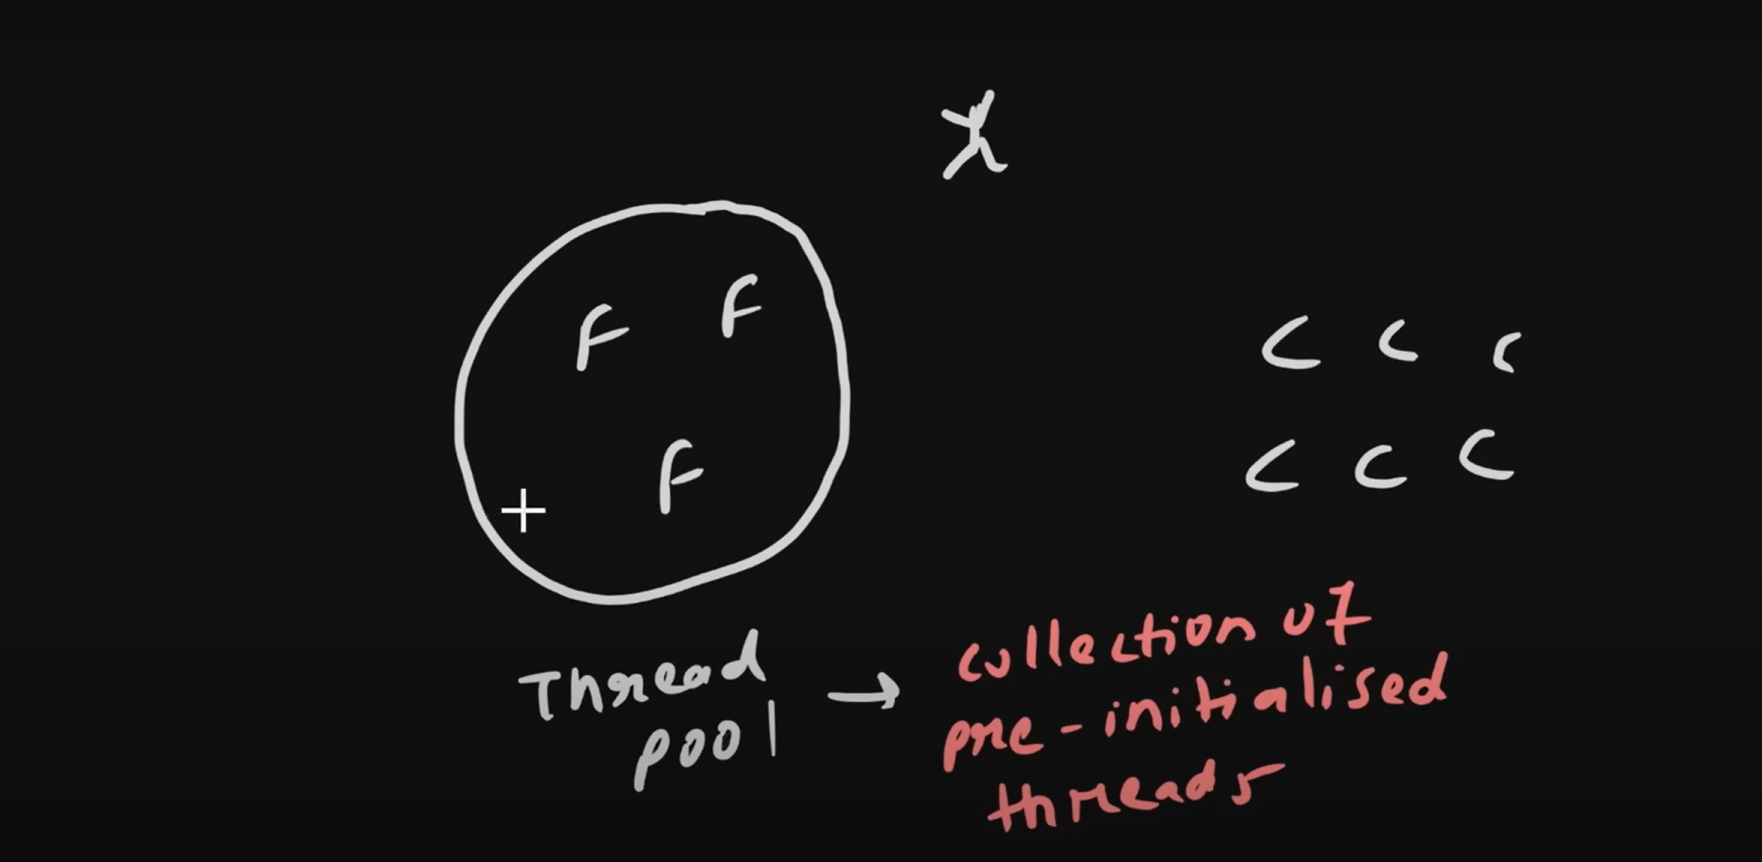 F F
C C C
F
C C C
Thread
pool
→ collection of
pre-initialised
threads